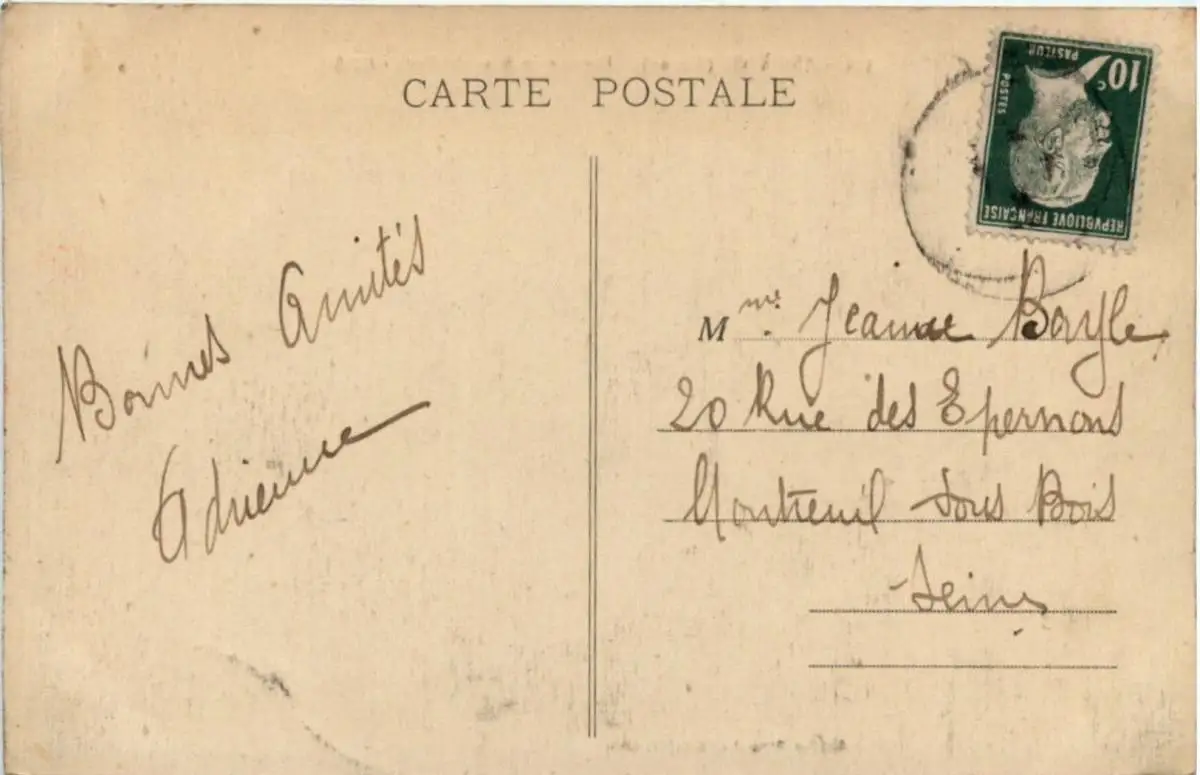 CARTE POSTALE
10c
PASTEUR
POSTES
REPVBLIQVE FRANÇAISE
Bonnes Amitiés
Adrienne
Mme. Jeanne Boyle
20 Rue des Epernons
Montreuil sous Bois
Seine